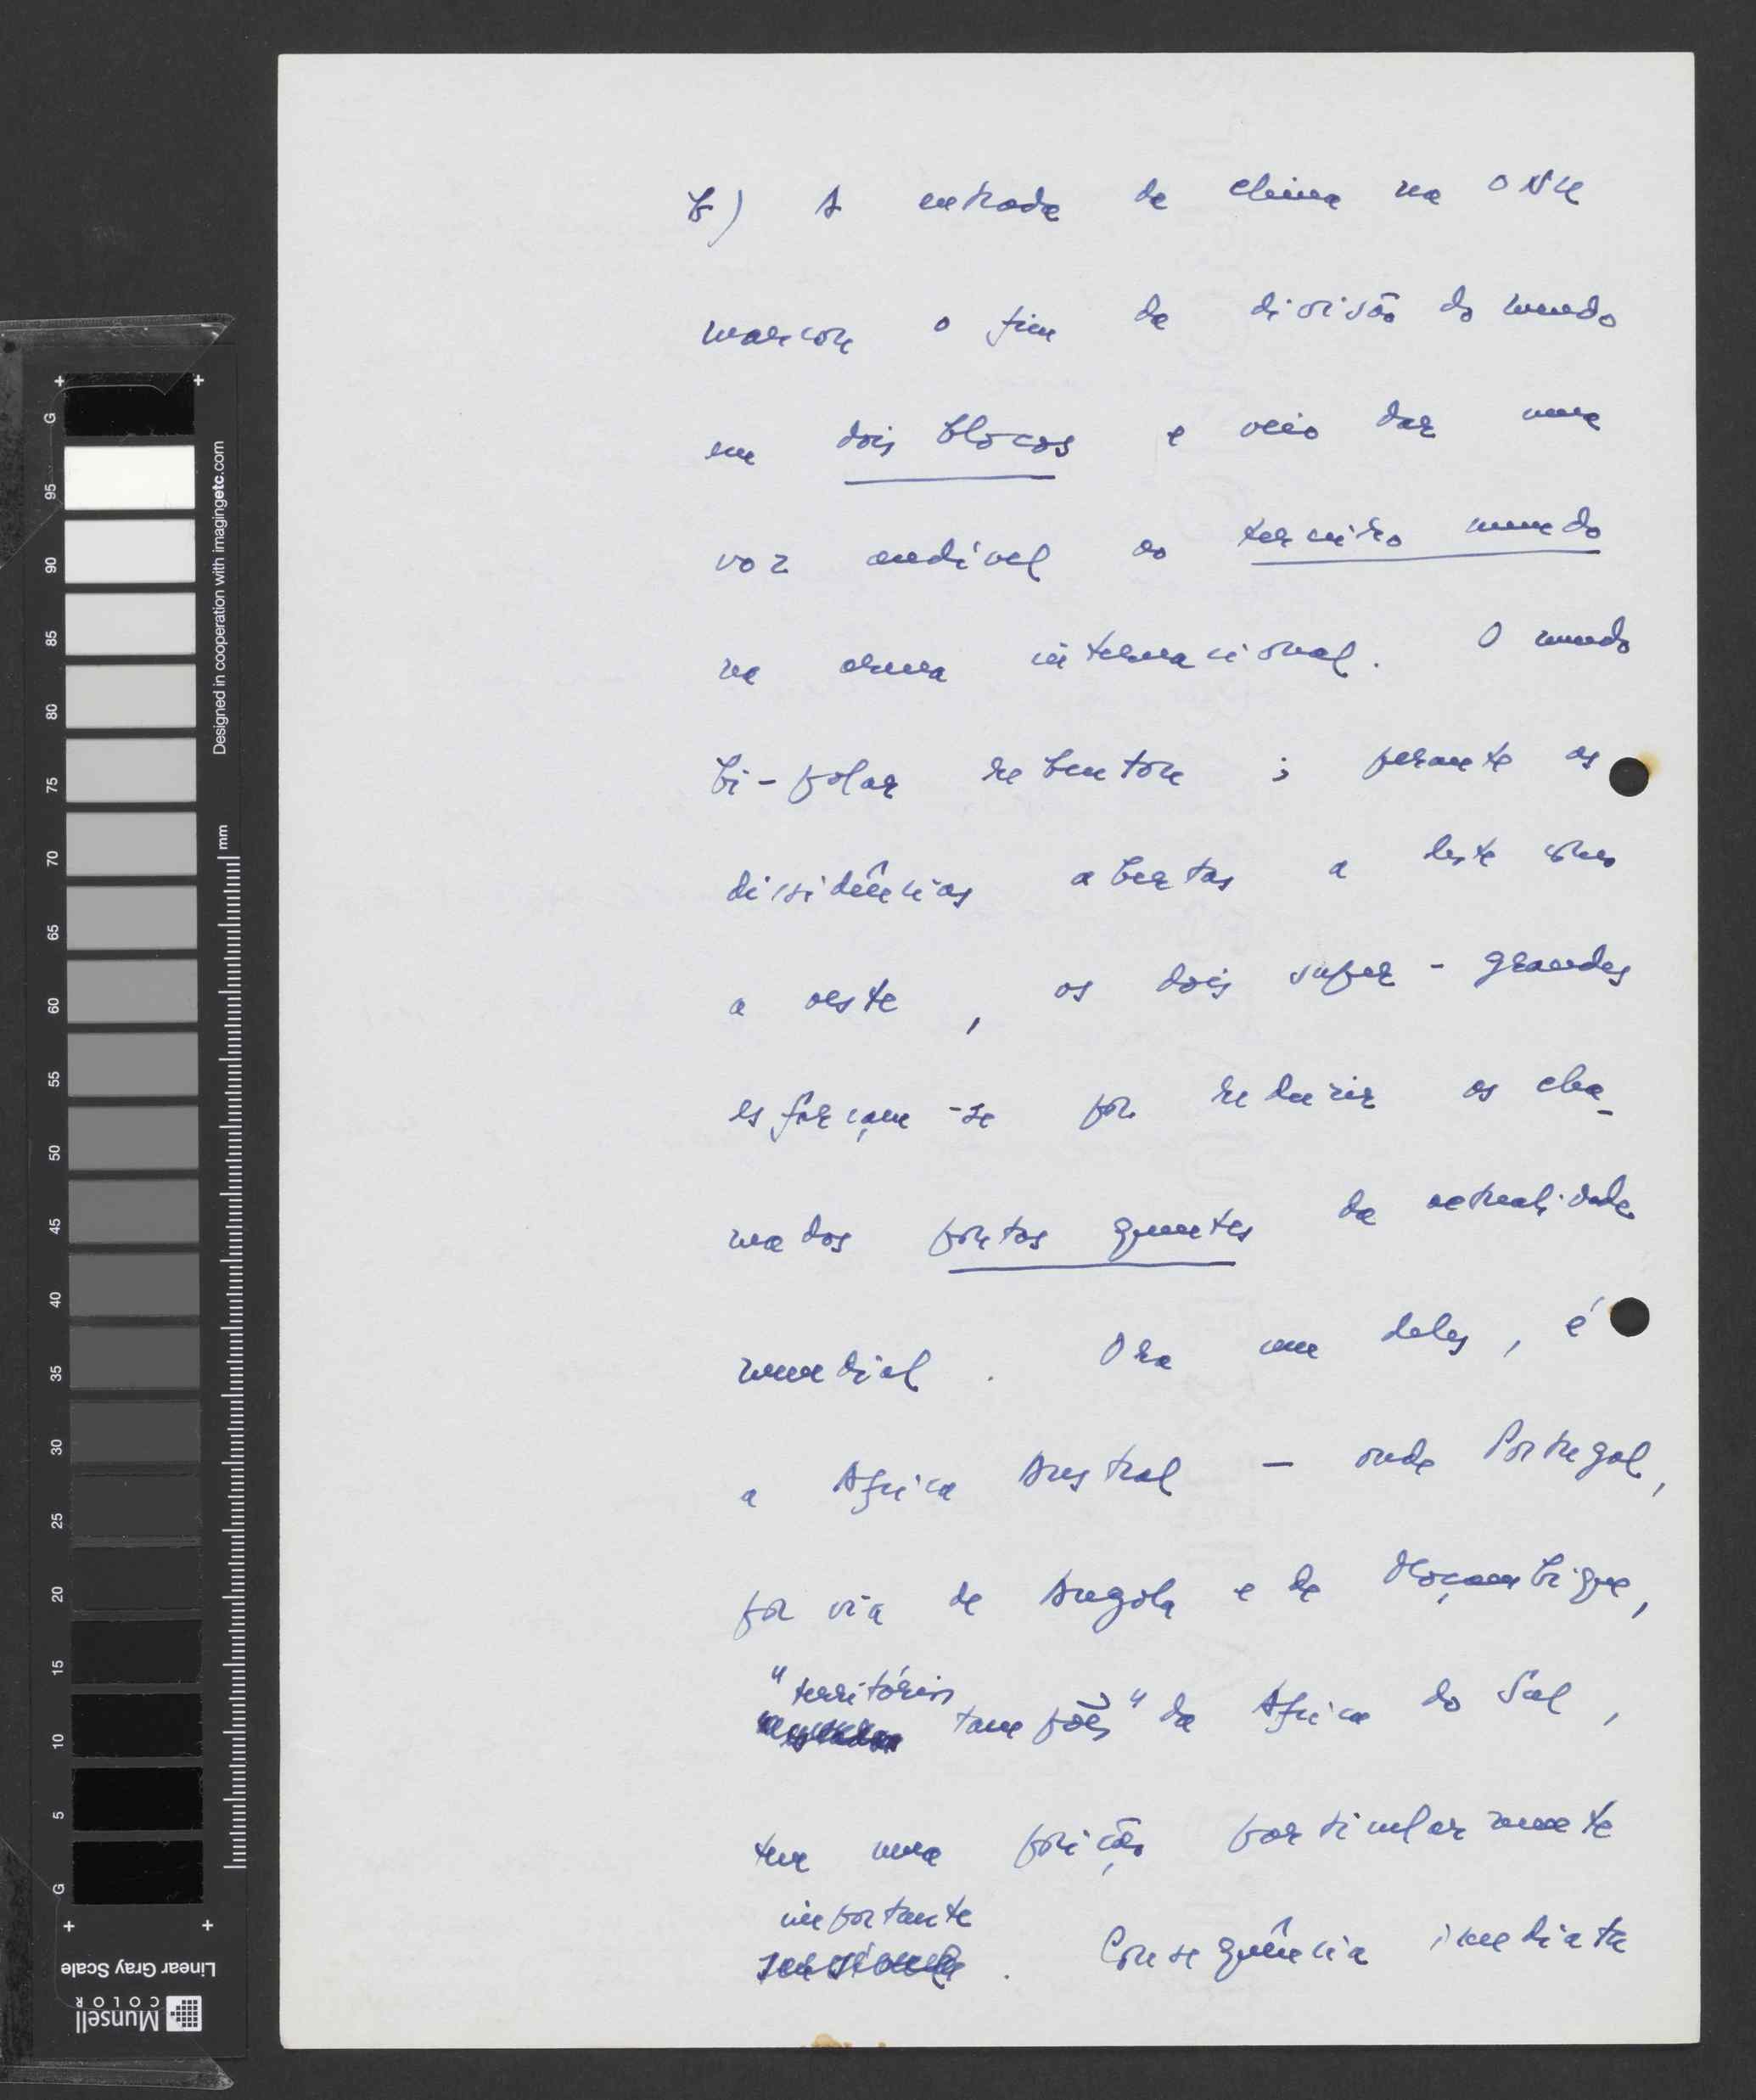 b) A entrada da China na ONU
marcou o fim da divisão do mundo
em dois blocos e veio dar uma
voz audível ao terceiro mundo
na arena internacional. O mundo
bi-polar rebentou ; perante as
dissidências abertas a leste como
a oeste , os dois super - grandes
esforçam-se por reduzir os cha-
mados pontos quentes da actualidade
mundial . Ora um deles , é
a Africa Austral — onde Portugal,
por via de Angola e de Moçambique,
"territórios
tampões" da Africa do Sul ,
tem uma posição particularmente
importante
. Consequência imediata
Designed in cooperation with imagingetc.com
mm
G 95 90 85 80 75 70 65 60 55 50 45 40 35 30 25 20 15 10 5 G
Linear Gray Scale
Munsell
COLOR